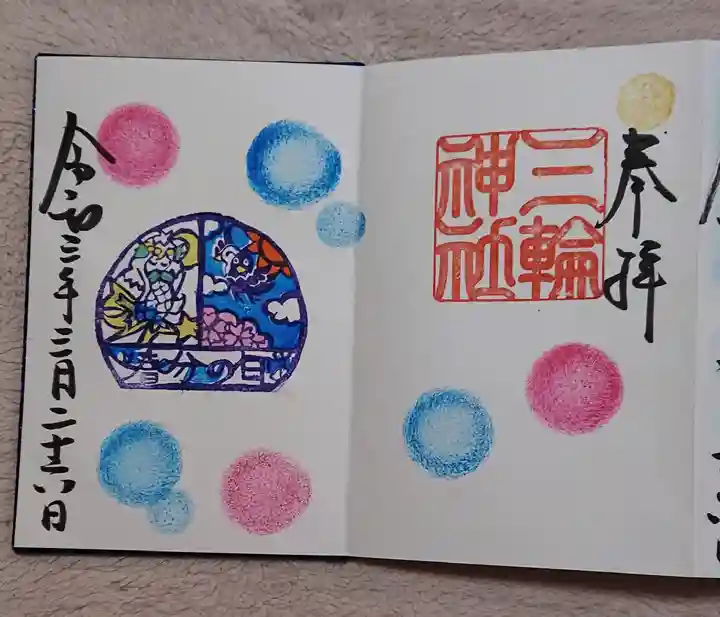 奉拝
三輪
神社
春分の日
令和三年三月二十八日